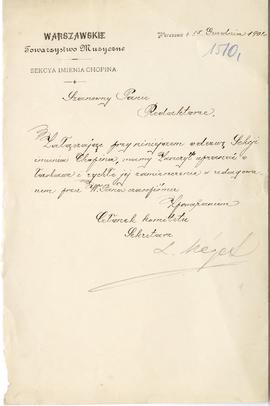 WARSZAWSKIE
Towarzystwo Muzyczne
SEKCYA IMIENIA CHOPINA.
Warszawa d. 18 Grudnia 190
1510,
Szanowny Panie
Redaktorze,
Załączając przy niniejszem odezwę Sekcji
imienia Chopina, mamy zaszczyt uprzejmie o
łaskawe i rychłe jej zamieszczenie w redagowa-
nem przez W. Pana czasopiśmie
Z poważaniem
Członek komitetu
Sekretarz